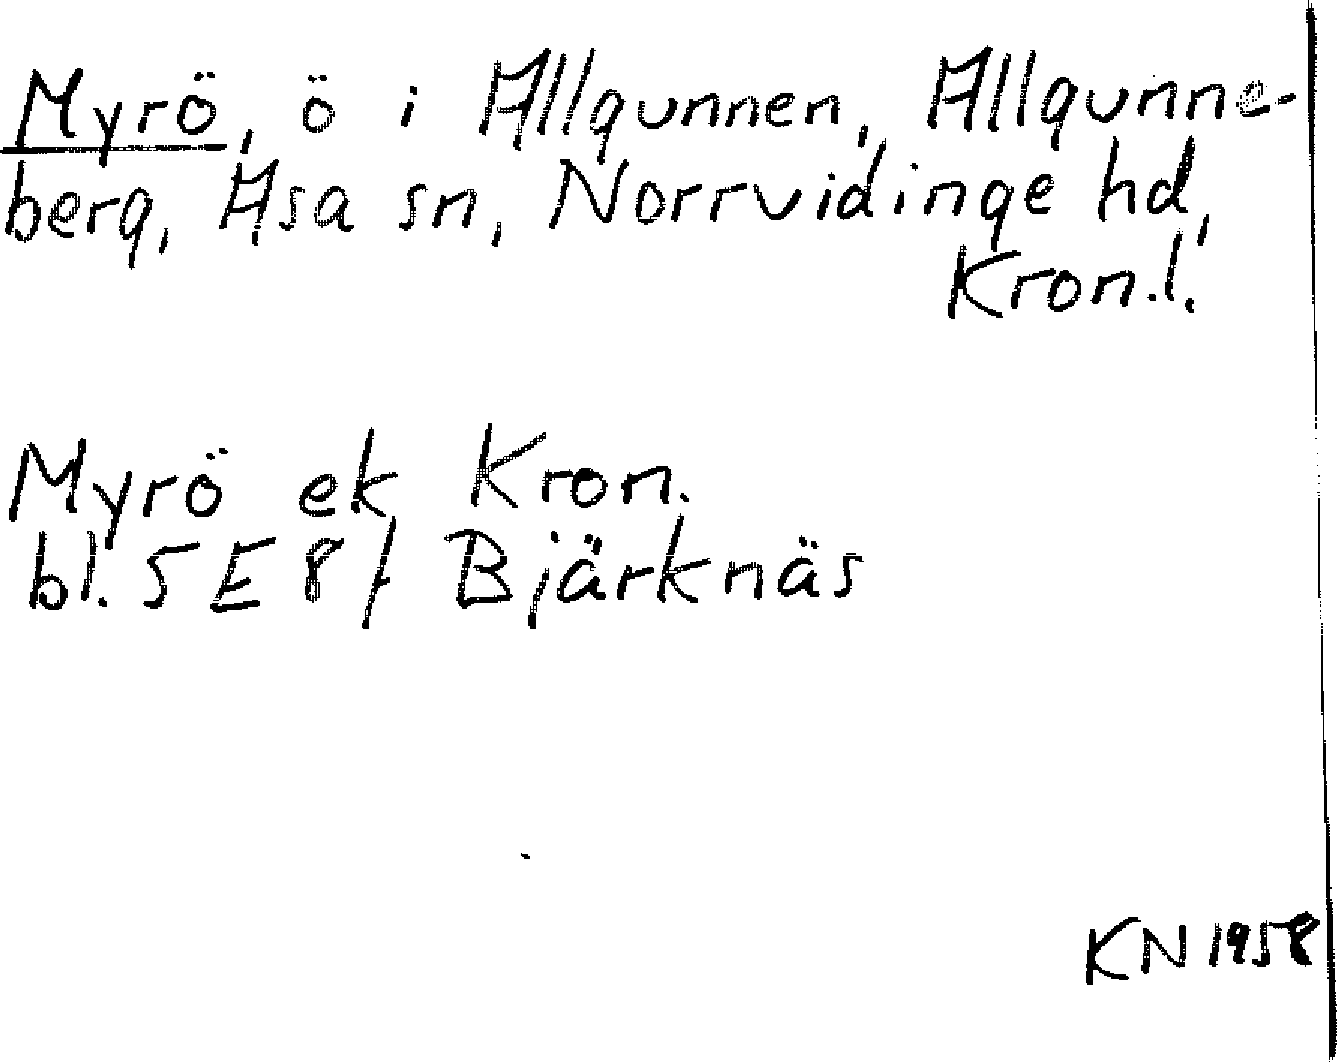 Myrö, ö i Allgunnen, Allgunne-
berg, Asa sn, Norrvidinge hd,
Kron.l.
Myrö ek Kron.
bl. 5 E 8 f Bjärknäs
KN 1958